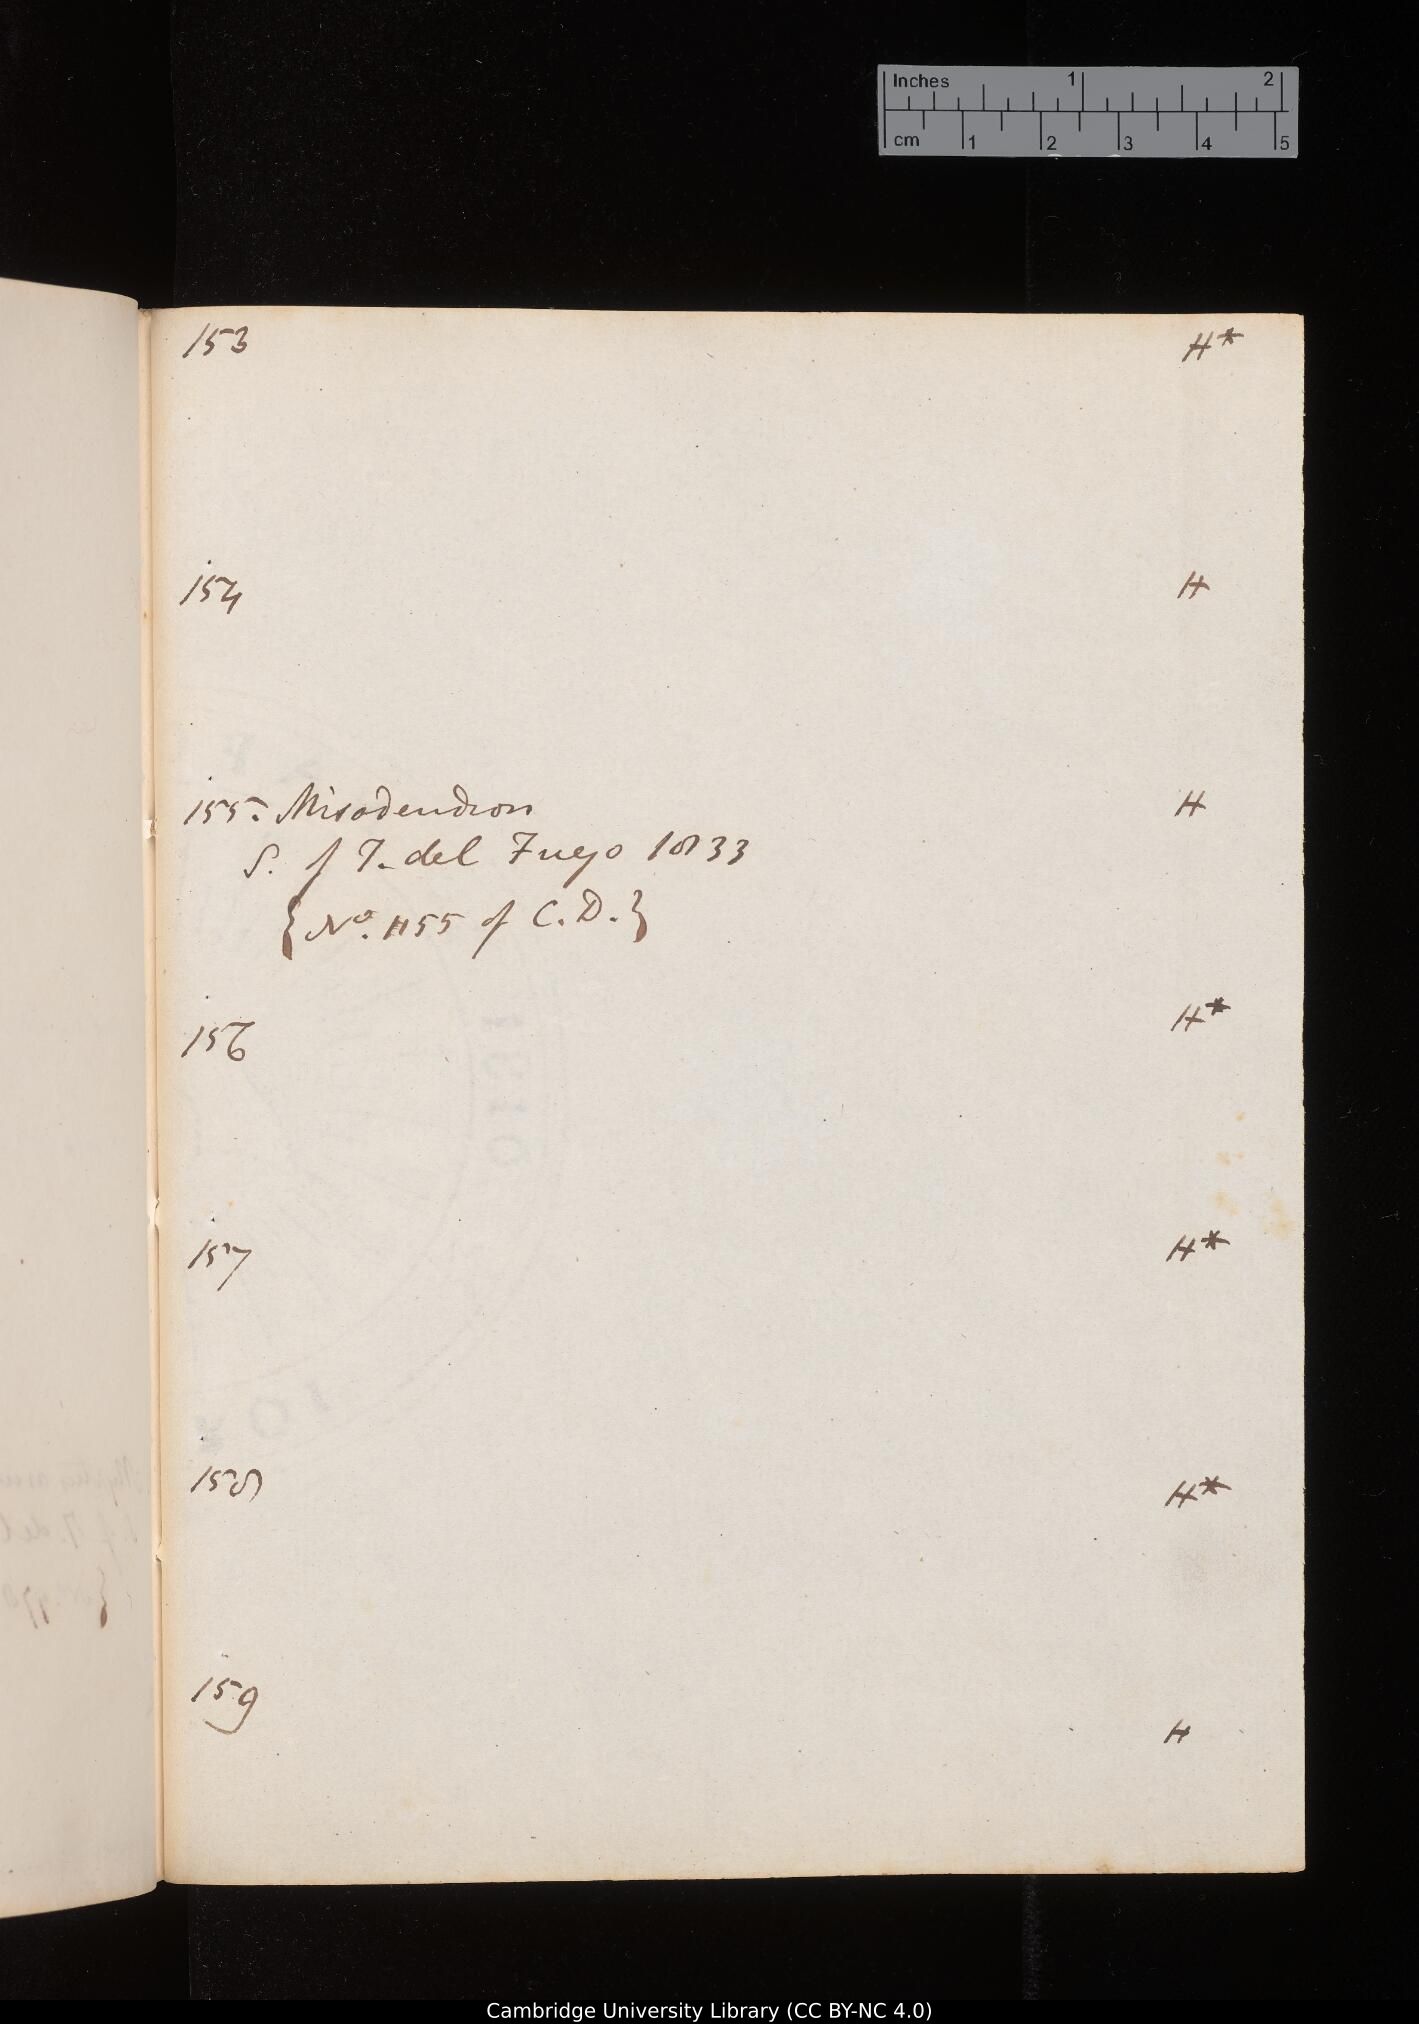 Inches 1 2
cm 1 2 3 4 5
153 H*
154 H
155. Misodendron H
S. of T. del Fuego 1833
{No. 1155 of C. D.}
156 H*
157 H*
158 H*
159 H
Cambridge University Library (CC BY-NC 4.0)